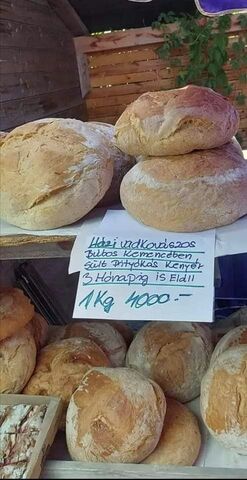 Házi vadkovászos
Búbos Kemencében
Sült Pityókás Kenyér
3 Hónapig is Eláll
1Kg 4000.-